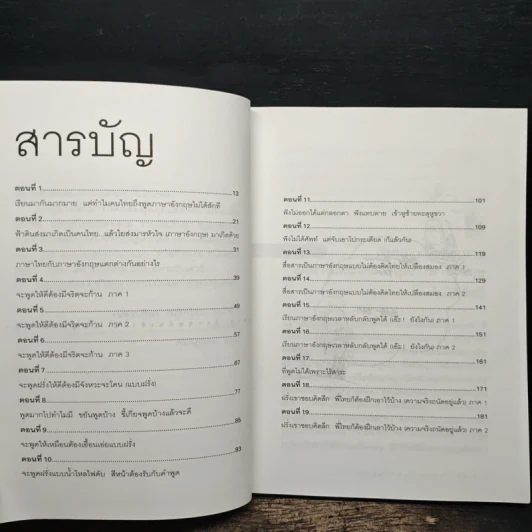 สารบัญ
ตอนที่ 1 13
เรียนมากันมากมาย แต่ทำไมคนไทยถึงพูดภาษาอังกฤษไม่ได้สักที
ตอนที่ 2 21
ฟ้าดินส่งมาเกิดเป็นคนไทย...แล้วใยส่งมารหัวใจ (ภาษาอังกฤษ) มาเกิดด้วย
ตอนที่ 3 31
ภาษาไทยกับภาษาอังกฤษแตกต่างกันอย่างไร
ตอนที่ 4 39
จะพูดให้ดีต้องมีจริตจะก้าน ภาค 1
ตอนที่ 5 49
จะพูดให้ดีต้องมีจริตจะก้าน ภาค 2
ตอนที่ 6 57
จะพูดให้ดีต้องมีจริตจะก้าน ภาค 3
ตอนที่ 7 67
จะพูดฝรั่งให้ดีต้องมีจังหวะจะโคน (แบบฝรั่ง)
ตอนที่ 8 77
พูดมากไปทำไมมี ขยันพูดบ้าง ขี้เกียจพูดบ้างแล้วจะดี
ตอนที่ 9 85
จะพูดให้เหมือนต้องเอื้อนเอ่ยแบบฝรั่ง
ตอนที่ 10 93
จะพูดฝรั่งแบบน้ำไหลไฟดับ สีหน้าต้องรับกับคำพูด
ตอนที่ 11 101
ฟังไม่ออกได้แต่กลอกตา ฟังแทบตาย เข้าหูซ้ายทะลุหูขวา
ตอนที่ 12 109
ฟังไม่ได้ศัพท์ แต่จับเอาไปกระเดียด (ก็แล้วกัน)
ตอนที่ 13 119
สื่อสารเป็นภาษาอังกฤษแบบไม่ต้องคิดไทยให้เปลืองสมอง ภาค 1
ตอนที่ 14 129
สื่อสารเป็นภาษาอังกฤษแบบไม่ต้องคิดไทยให้เปลืองสมอง ภาค 2
ตอนที่ 15 141
เรียนภาษาอังกฤษเวลาหลับกลับพูดได้ (เอ๊ะ! ยังไงกัน) ภาค 1
ตอนที่ 16 151
เรียนภาษาอังกฤษเวลาหลับกลับพูดได้ (เอ๊ะ! ยังไงกัน) ภาค 2
ตอนที่ 17 161
ที่พูดไม่ได้เพราะไร้สาระ
ตอนที่ 18 171
ฝรั่งเขาชอบคิดลึก พี่ไทยก็ต้องฝึกเอาไว้บ้าง (ความจริงถนัดอยู่แล้ว) ภาค 1
ตอนที่ 19 181
ฝรั่งเขาชอบคิดลึก พี่ไทยก็ต้องฝึกเอาไว้บ้าง (ความจริงถนัดอยู่แล้ว) ภาค 2